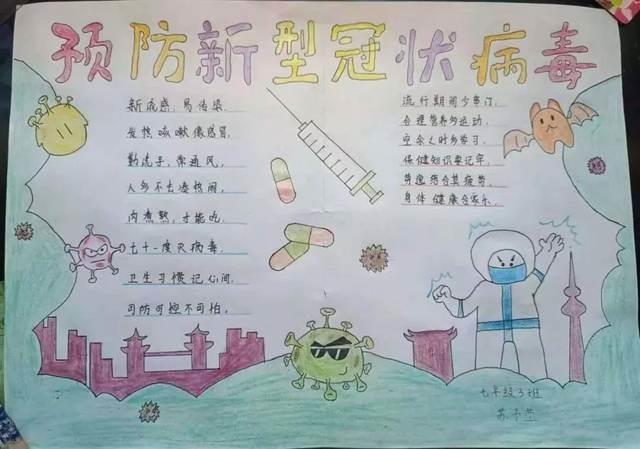 预防新型冠状病毒
新流感,易传染,
发热咳嗽像感冒,
勤洗手,常通风,
人多不去凑热闹,
肉煮熟,才能吃,
七十一度灭病毒,
卫生习惯记心间,
可防可控不可怕。
流行期间少串门,
合理营养多运动,
空余之时多学习,
保健知识要记牢,
劳逸结合莫疲劳,
身体健康合家乐。
七年级3班